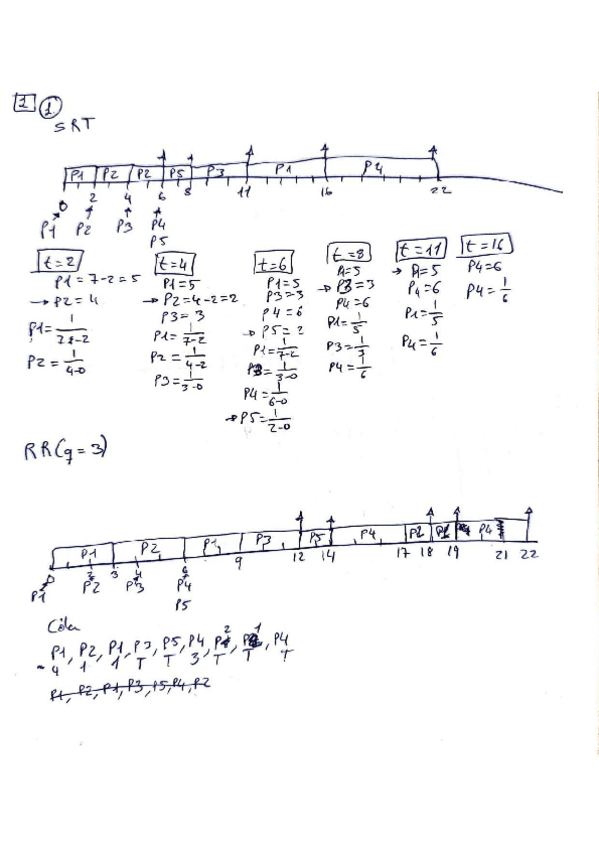 1 1
SRT
P1 P2 P2 P5 P3 P1 P4
0 2 4 6 8 11 16 22
P1 P2 P3 P4
P5
t=2 t=4 t=6 t=8 t=11 t=16
P1=7-2=5 P1=5 P1=5 P1=5 → P1=5 P4=6
→ P2=4 → P2=4-2=2 P3=3 → P3=3 P4=6 P4=1/6
P3=3 P4=6 P4=6 P1=1/5
P2=1/4-0 P1=1/7-2 → P5=2 P1=1/5 P4=1/6
P2=1/4-2 P1=1/7-2 P3=1/3
P3=1/3-0 P3=1/3-0 P4=1/6
P4=1/6-0
→ P5=1/2-0
RR(q=3)
P1 P2 P1 P3 P5 P4 P2 P4
0 2 3 4 6 9 12 14 17 18 19 21 22
P1 P2 P3 P4
P5
Cola
P1, P2, P1, P3, P5, P4, P2, P1, P4
4 1 1 T T 3 T T T
P1, P2, P1, P3, P5, P4, P2